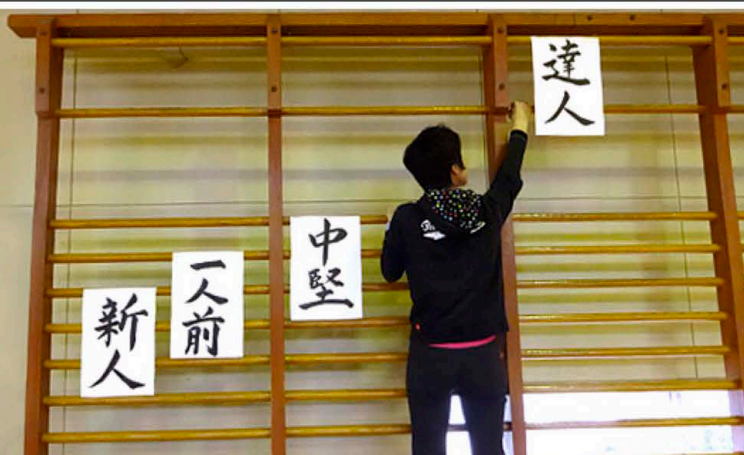 新人
一人前
中堅
達人